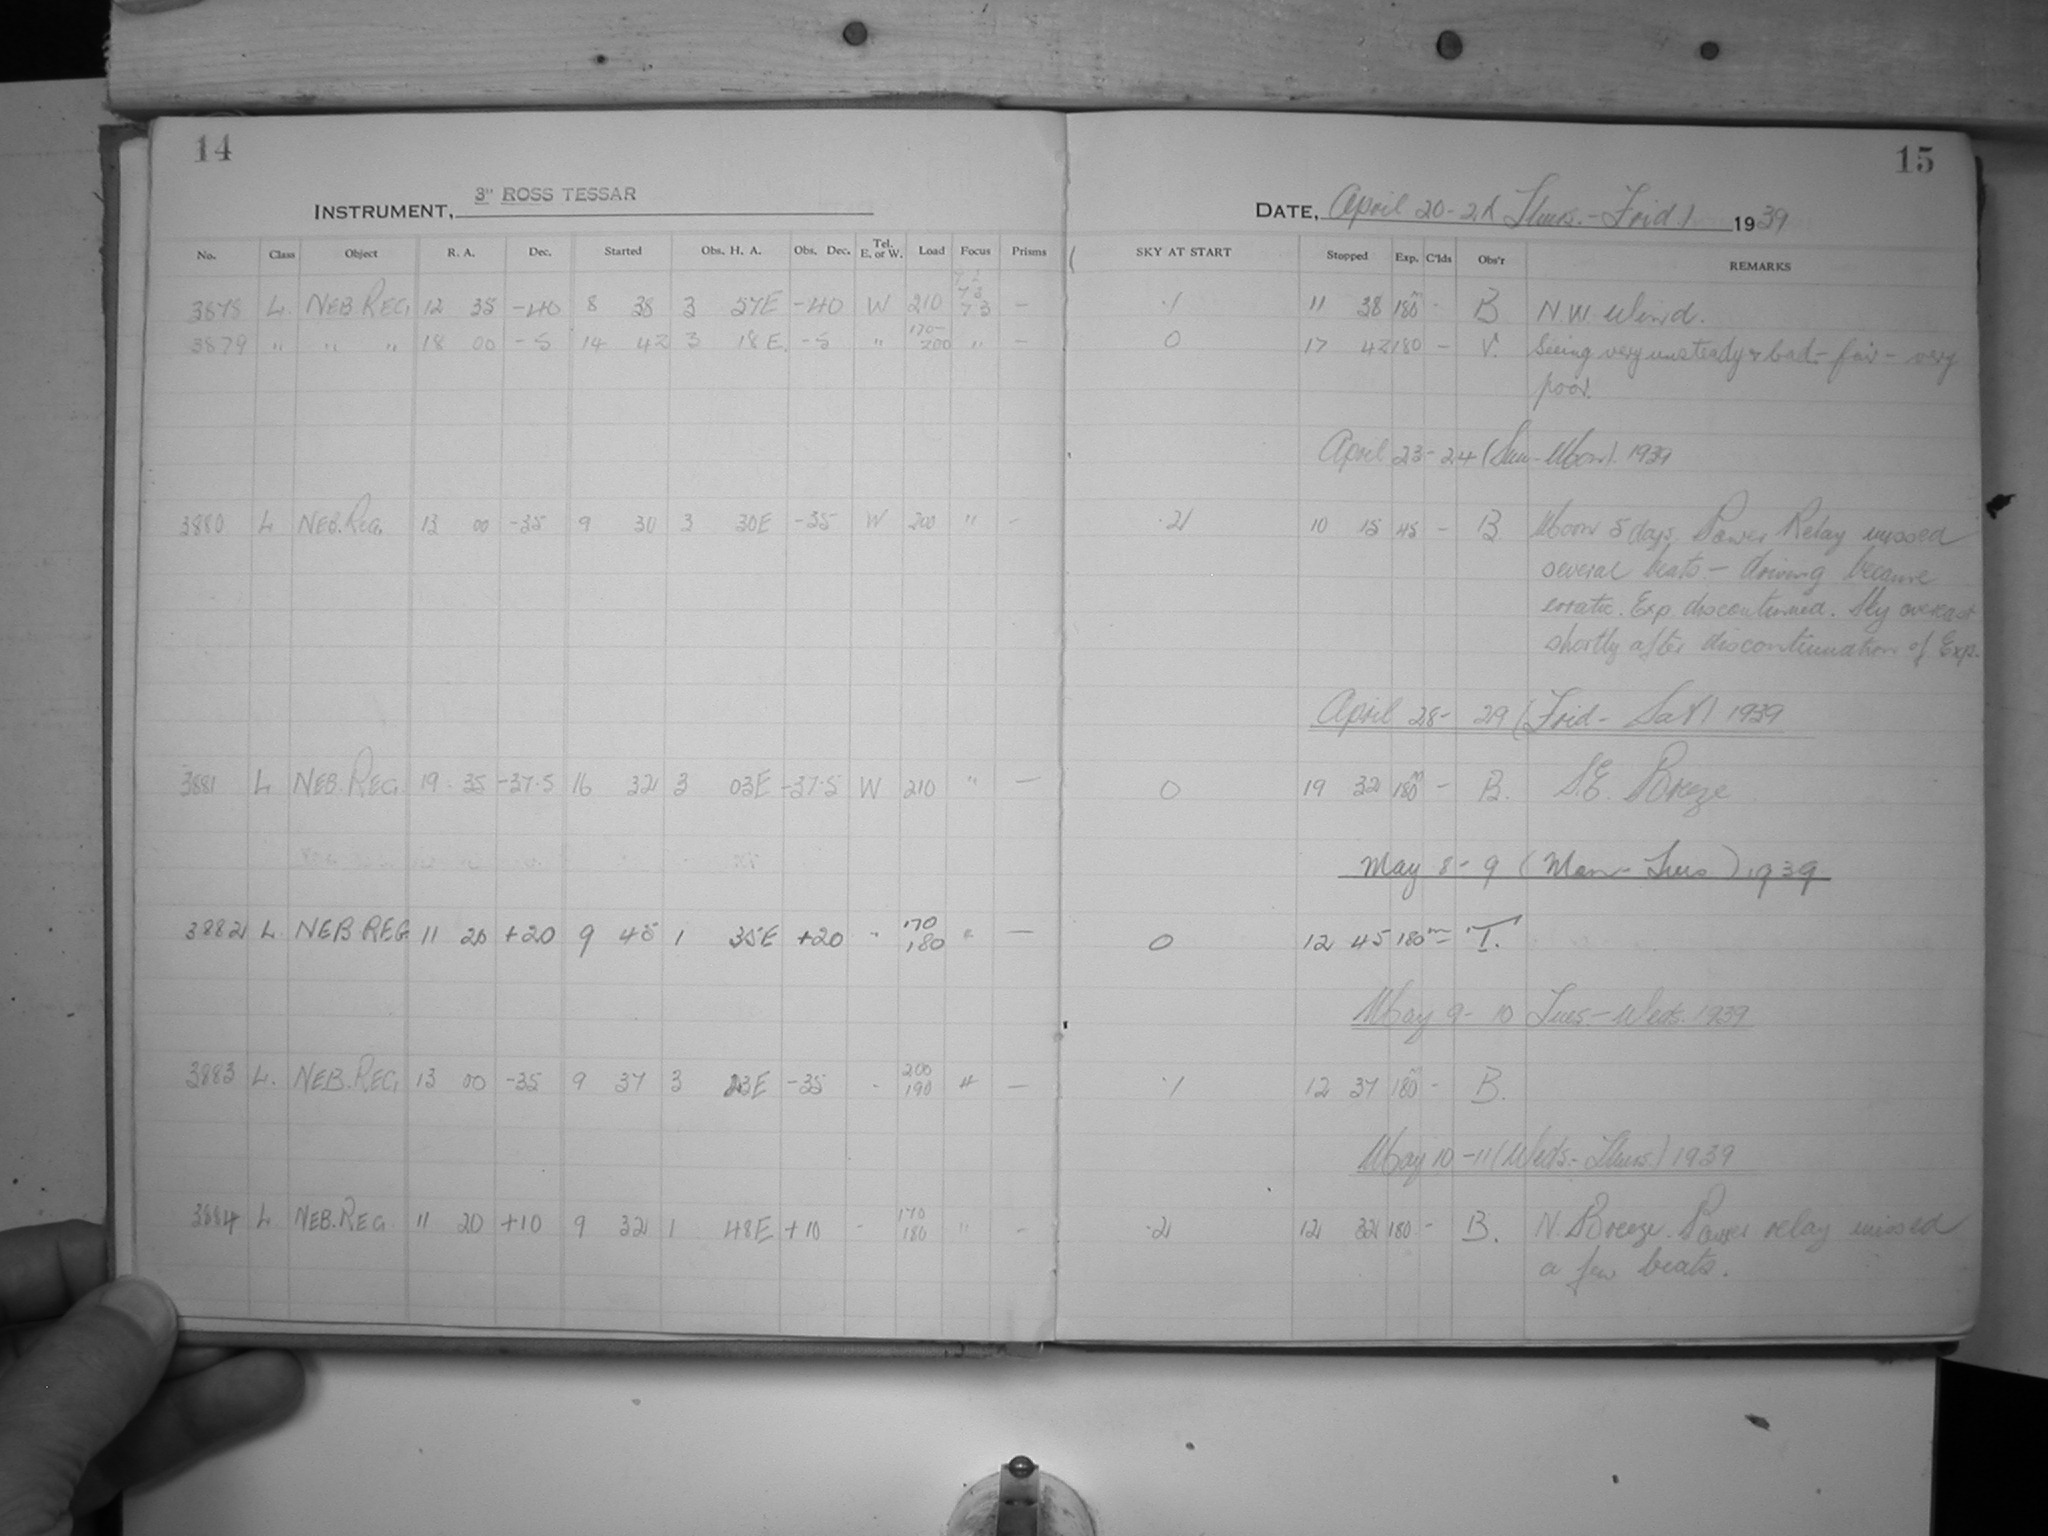 14
15
INSTRUMENT, 3" ROSS TESSAR
DATE, April 20-21 Thurs.-Frid. 1939
No. Class Object R. A. Dec. Started Obs. H. A. Obs. Dec. Tel. E. or W. Load Focus Prisms SKY AT START Stopped Exp. C'lds Obs'r REMARKS
3878 L. NEB REG. 12 35 -40 8 38 3 57E -40 W 210 7.3 - .1 11 38 180m - B N.W. Wind.
3879 " " " 18 00 -5 14 42 3 18E. -5 " 170-200 " - 0 17 42 180 - V. Seeing very unsteady & bad - fair - very
poor.
April 23-24 (Sun-Mon). 1939
3880 L NEB. REG. 13 00 -35 9 30 3 30E -35 W 200 " - .2 10 15 45 - B. Moon 5 days. Power Relay missed
several beats - driving became
erratic. Exp. discontinued. Sky overcast
shortly after discontinuation of Exp.
April 28-29 (Frid-Sat) 1939
3881 L NEB. REG. 19 35 -37.5 16 32 3 03E -37.5 W 210 " - 0 19 32 180m - B. S.E. Breeze
May 8-9 (Mon-Tues) 1939
3882 L. NEB REG. 11 20 +20 9 45 1 35E +20 " 170 180 " - 0 12 45 180m - T.
May 9-10 Tues.-Weds. 1939
3883 L. NEB. REG. 13 00 -35 9 37 3 23E -35 - 200 190 " - .1 12 37 180m - B.
May 10-11 (Weds.-Thurs.) 1939
3884 L NEB. REG. 11 20 +10 9 32 1 48E +10 - 170 180 " - .2 12 32 180 - B. N. Breeze. Power relay missed
a few beats.